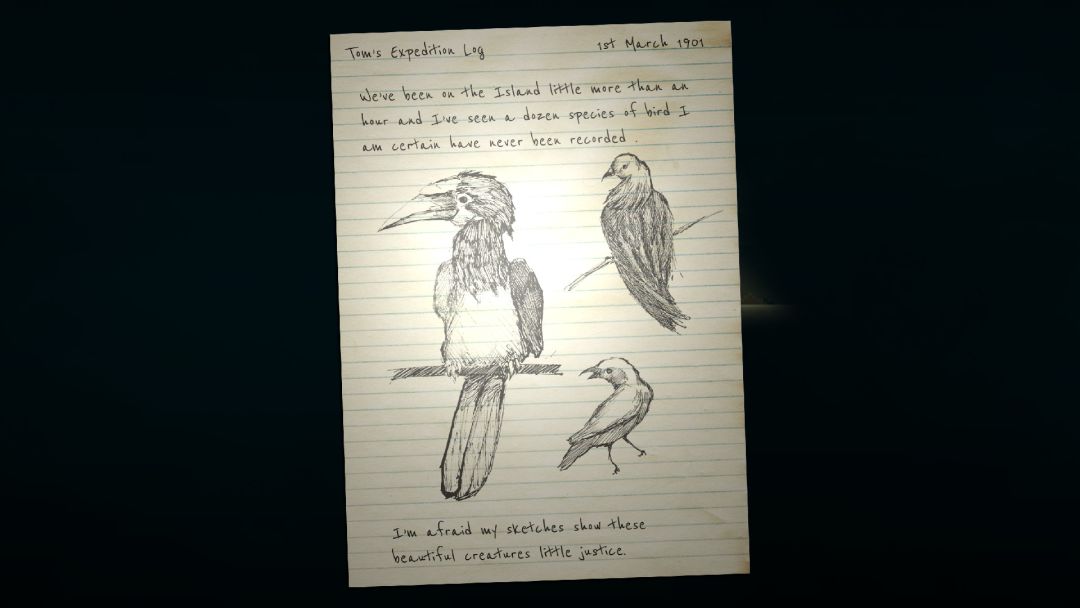 Tom's Expedition Log
1st March 1901
We've been on the Island little more than an
hour and I've seen a dozen species of bird I
am certain have never been recorded.
I'm afraid my sketches show these
beautiful creatures little justice.